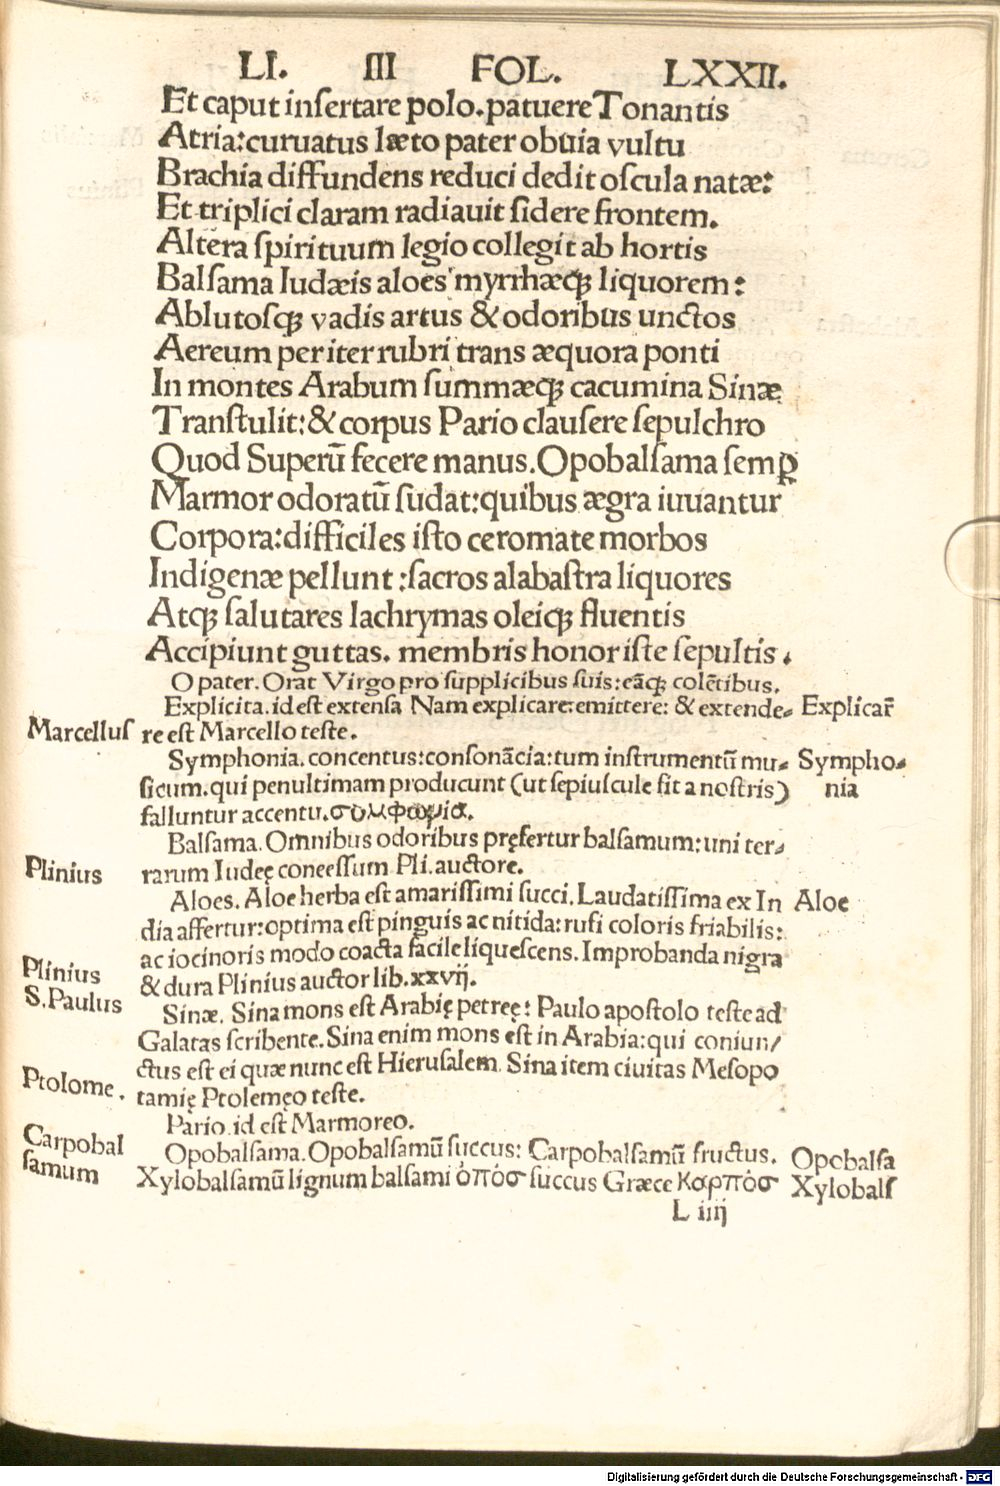 LI. III FOL. LXXII.
Et caput inſertare polo. patuere Tonantis
Atria: curuatus læto pater obuia vultu
Brachia diffundens reduci dedit oſcula natæ:
Et triplici claram radiauit ſidere frontem.
Altera ſpirituum legio collegit ab hortis
Balſama Iudæis aloes myrrhæqꝫ liquorem:
Ablutoſqꝫ vadis artus & odoribus unctos
Aereum per iter rubri trans æquora ponti
In montes Arabum ſummæqꝫ cacumina Sinæ
Tranſtulit: & corpus Pario clauſere ſepulchro
Quod Superū fecere manus. Opobalſama ſemꝑ
Marmor odoratū ſudat: quibus ægra iuuantur
Corpora: difficiles iſto ceromate morbos
Indigenæ pellunt: ſacros alabaſtra liquores
Atqꝫ ſalutares lachrymas oleiqꝫ fluentis
Accipiunt guttas. membris honor iſte ſepultis.
O pater. Orat Virgo pro ſupplicibus ſuis: eāqꝫ colētibus.
Explicita. id eſt extenſa Nam explicare: emittere: & extende- Explicar̄
Marcellus re eſt Marcello teſte.
Symphonia. concentus: conſonācia: tum inſtrumentū mu- Sympho-
ſicum. qui penultimam producunt (ut ſepiuſcule fit a noſtris) nia
falluntur accentu. συμφωνία.
Balſama. Omnibus odoribus pręfertur balſamum: uni ter-
Plinius rarum Iudeę conceſſum Pli. auctore.
Aloes. Aloe herba eſt amariſſimi ſucci. Laudatiſſima ex In Aloe
dia affertur: optima eſt pinguis ac nitida: rufi coloris friabilis:
ac iocinoris modo coacta facile liqueſcens. Improbanda nigra
Plinius & dura Plinius auctor lib. xxvij.
S. Paulus Sinæ. Sina mons eſt Arabię petreę: Paulo apoſtolo teſte ad
Galatas ſcribente. Sina enim mons eſt in Arabia: qui coniun/
ctus eſt ei quæ nunc eſt Hieruſalem. Sina item ciuitas Meſopo
Ptolome. tamię Ptolemęo teſte.
Pario. id eſt Marmoreo.
Carpobal Opobalſama. Opobalſamū ſuccus: Carpobalſamū fructus. Opobalſa
ſamum Xylobalſamū lignum balſami ὀπόσ ſuccus Græce καρπόσ Xylobalſ
L iiij
Digitalisierung gefördert durch die Deutsche Forschungsgemeinschaft - DFG